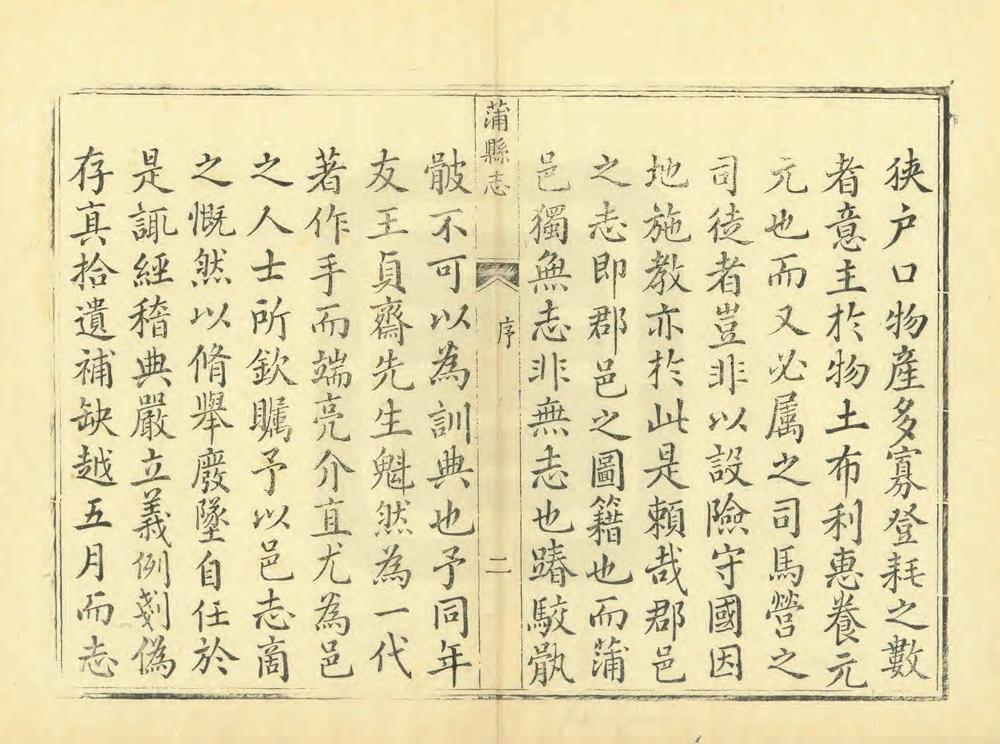 狹户口物產多寡登耗之數
者意主於物土布利惠養元
元也而又必属之司馬營之
司徒者豈非以設險守國因
地施教亦於此是頼哉郡邑
之志即郡邑之圖籍也而蒲
邑獨無志非無志也踳駮骫
蒲縣志
序
二
骳不可以為訓典也予同年
友王貞齋先生魁然為一代
著作手而端亮介直尤為邑
之人士所欽矚予以邑志啇
之慨然以脩舉廢墜自任於
是諏經稽典嚴立義例剗偽
存真拾遺補缺越五月而志